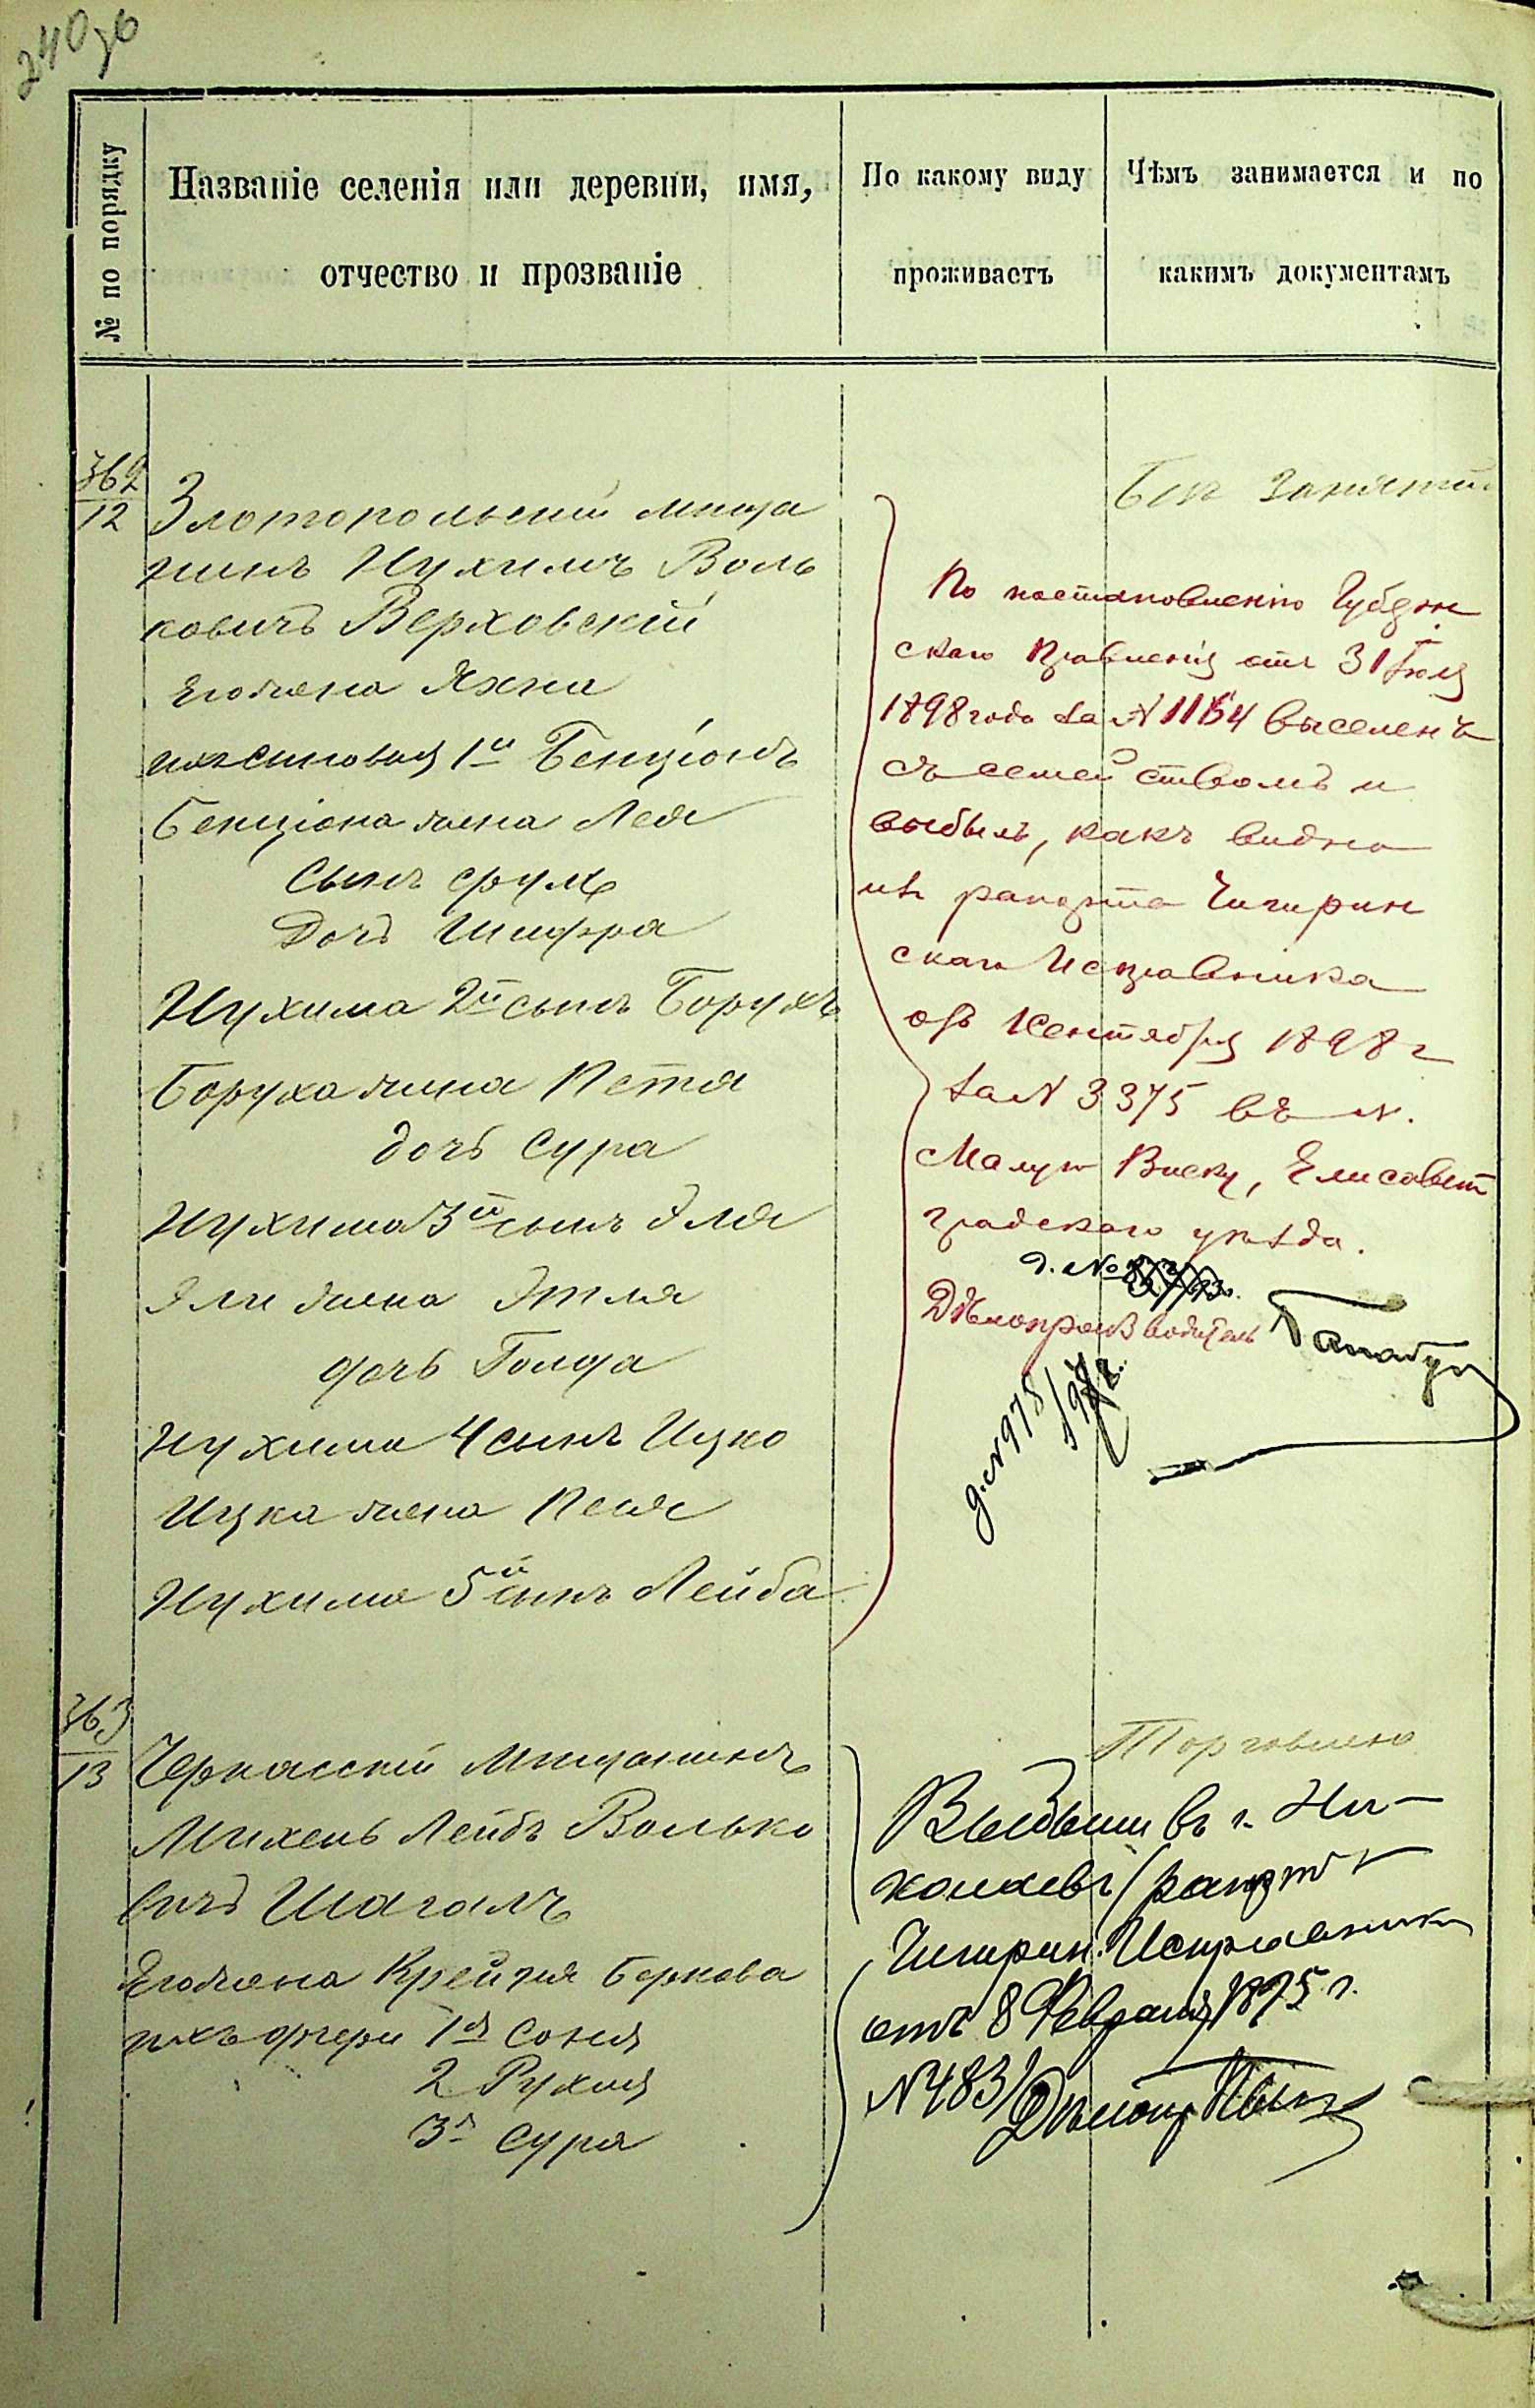 240 об
№ по порядку
Названіе селенія или деревни, имя,
отчество и прозваніе
По какому виду
проживаетъ
Чѣмъ занимается и по
какимъ документамъ
362
12
Златопольскій мѣща
нинъ Нухимъ Воль
ковичъ Верховскій
Его жена Яхна
ихъ сыновья 1й Бенціонъ
Бенціона жена Лея
сынъ Срулъ
дочь Шифра
Нухима 2й сынъ Борухъ
Боруха жена Петя
дочь Сура
Нухима 3й сынъ Эля
Эли жена Этля
дочь Голда
Нухима 4 сынъ Ицко
Ицка жена Песя
Нухима 5й сынъ Лейба
Безъ занятій
По постановленію Губерн
скаго Правленія отъ 31 Іюля
1898 года за № 1154 выселенъ
съ семействомъ и
выбылъ, какъ видно
изъ рапорта Чигирин
скаго Исправника
отъ 1 Сентября 1898 г
за № 3375 въ м.
Малую Виску, Елисавет
градскаго уѣзда.
д. №
Дѣлопроизводитель
д. № 978
363
13
Черкасскій мѣщанинъ
Михель Лейбъ Волько
вичъ Шагалъ
Его жена Крейня Беркова
ихъ дочери 1я Соня
2 Рухля
3я Сура
Торговлею
Выбыли въ г. Ни-
колаевъ (рапортъ
Чигирин. Исправника
отъ 8 Февраля 1895 г.
№ 483)
Дѣлопр